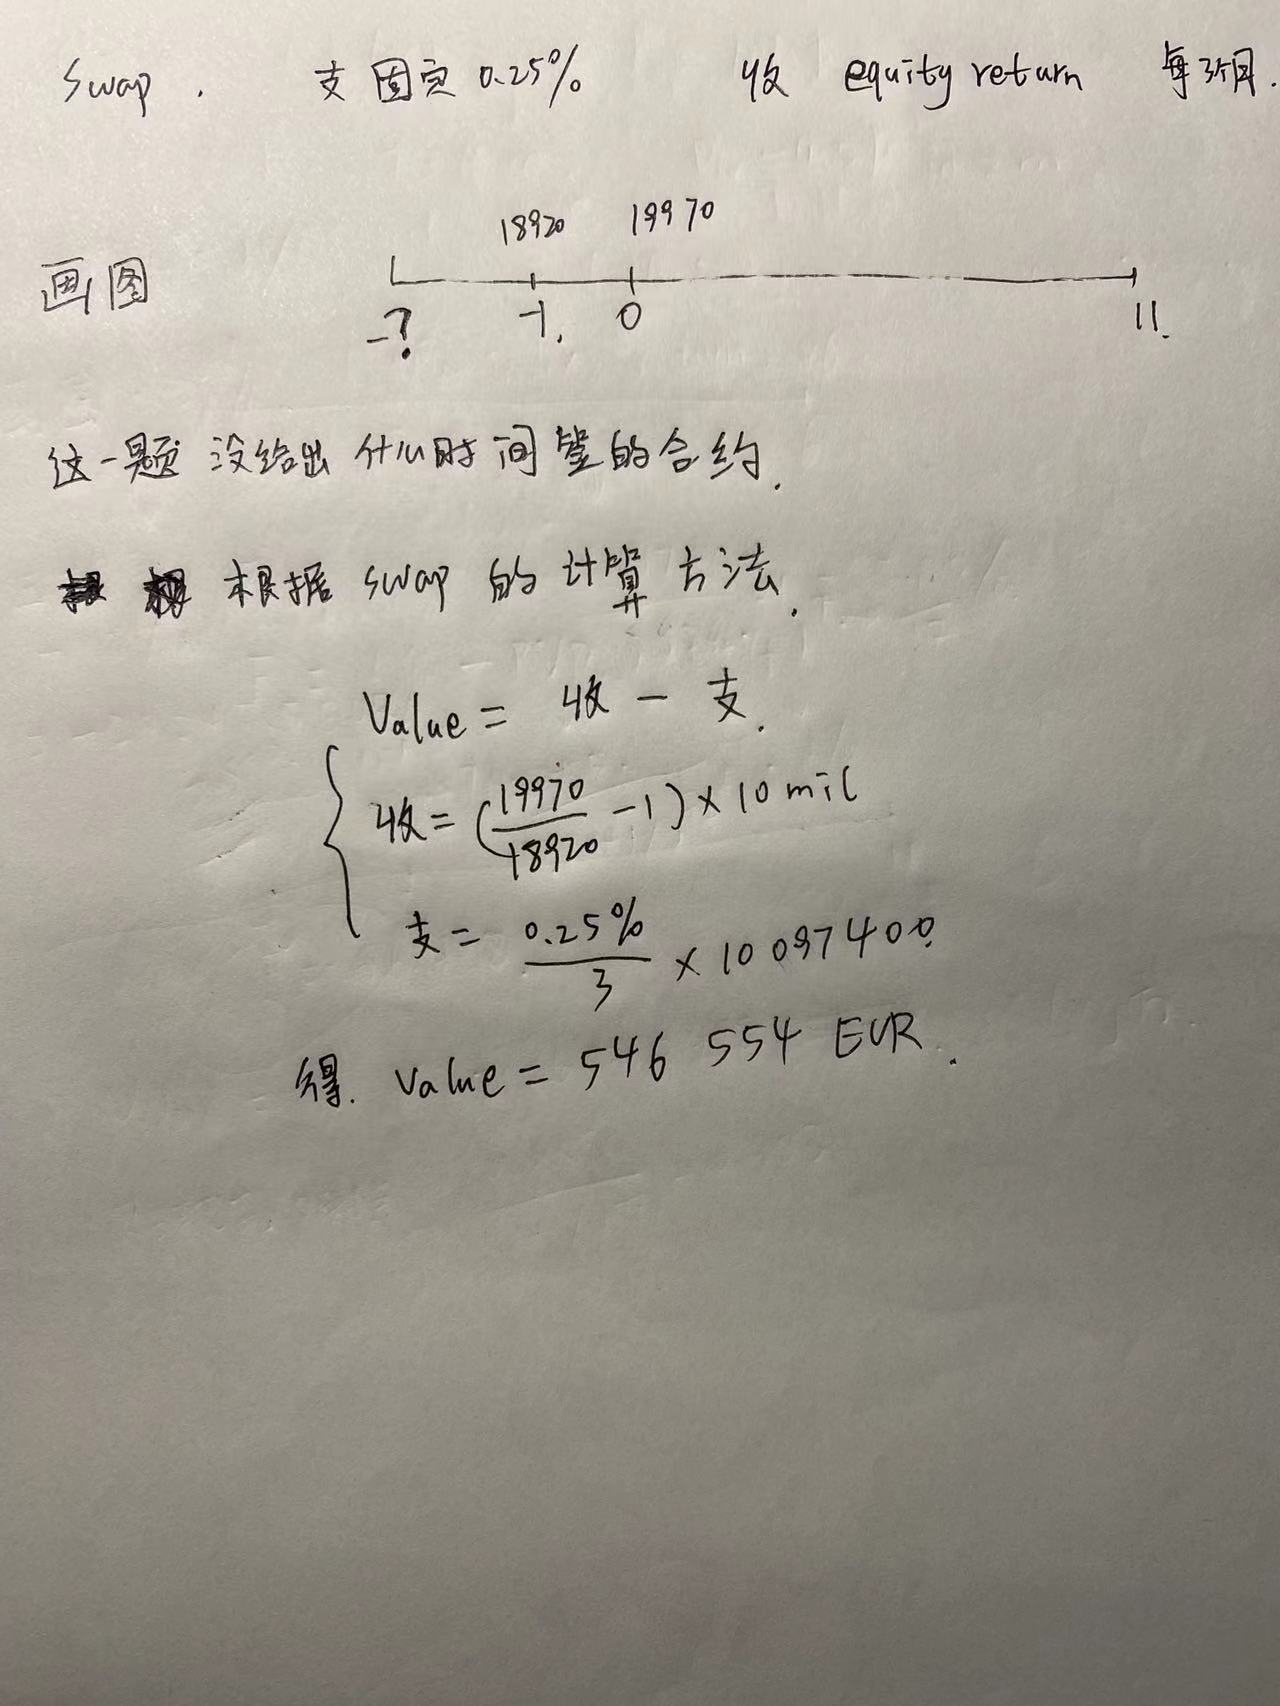 Swap. 支固定0.25% 收 equity return 每3个月.
18920 19970
画图
-? -1. 0 11.
这一题没给出什么时间签的合约.
根据 swap 的计算方法.
Value = 收 - 支.
收 = (19970/18920 - 1) × 10 mil
支 = 0.25%/3 × 10 097 400.
得. Value = 546 554 EUR.